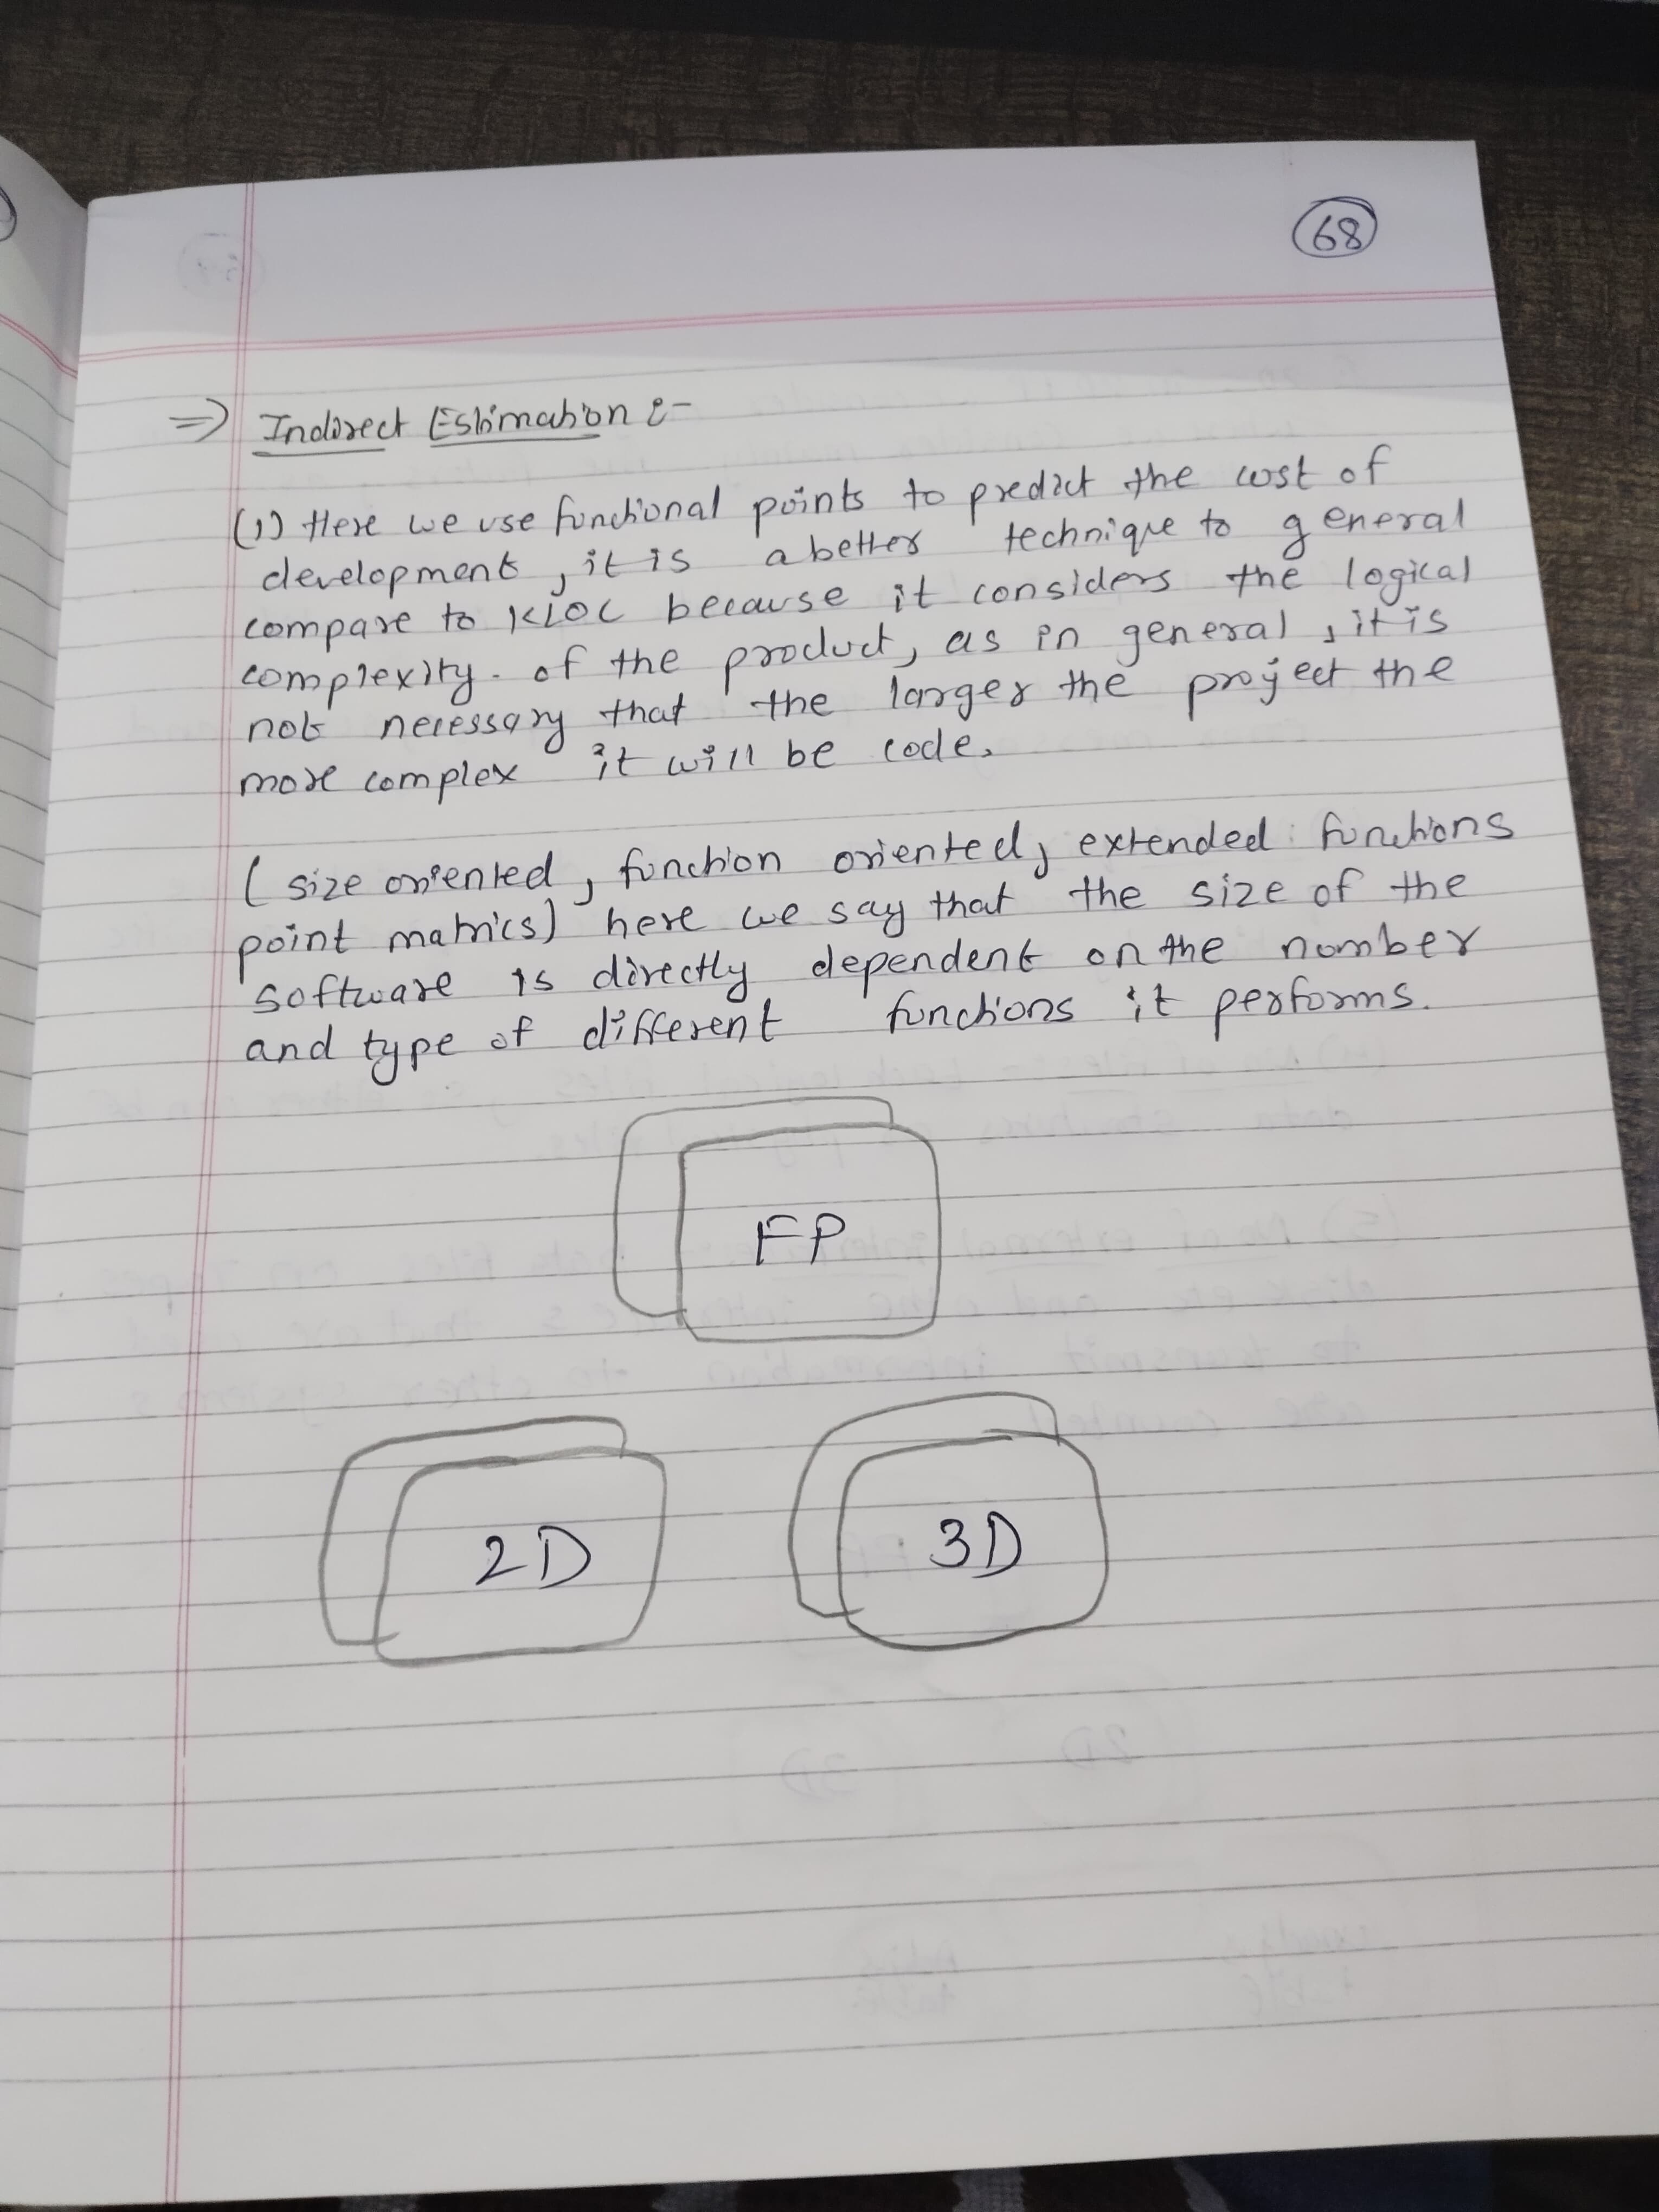 68
=> Indirect Estimation :-
(1) Here we use functional points to predict the cost of
development, it is a better technique to general
compare to KLOC because it considers the logical
complexity. of the product, as in general, it is
not necessary that the larger the project the
more complex it will be code.
( size oriented, function oriented, extended functions
point matrics) here we say that the size of the
software is directly dependent on the number
and type of different functions it performs.
FP
2D 3D